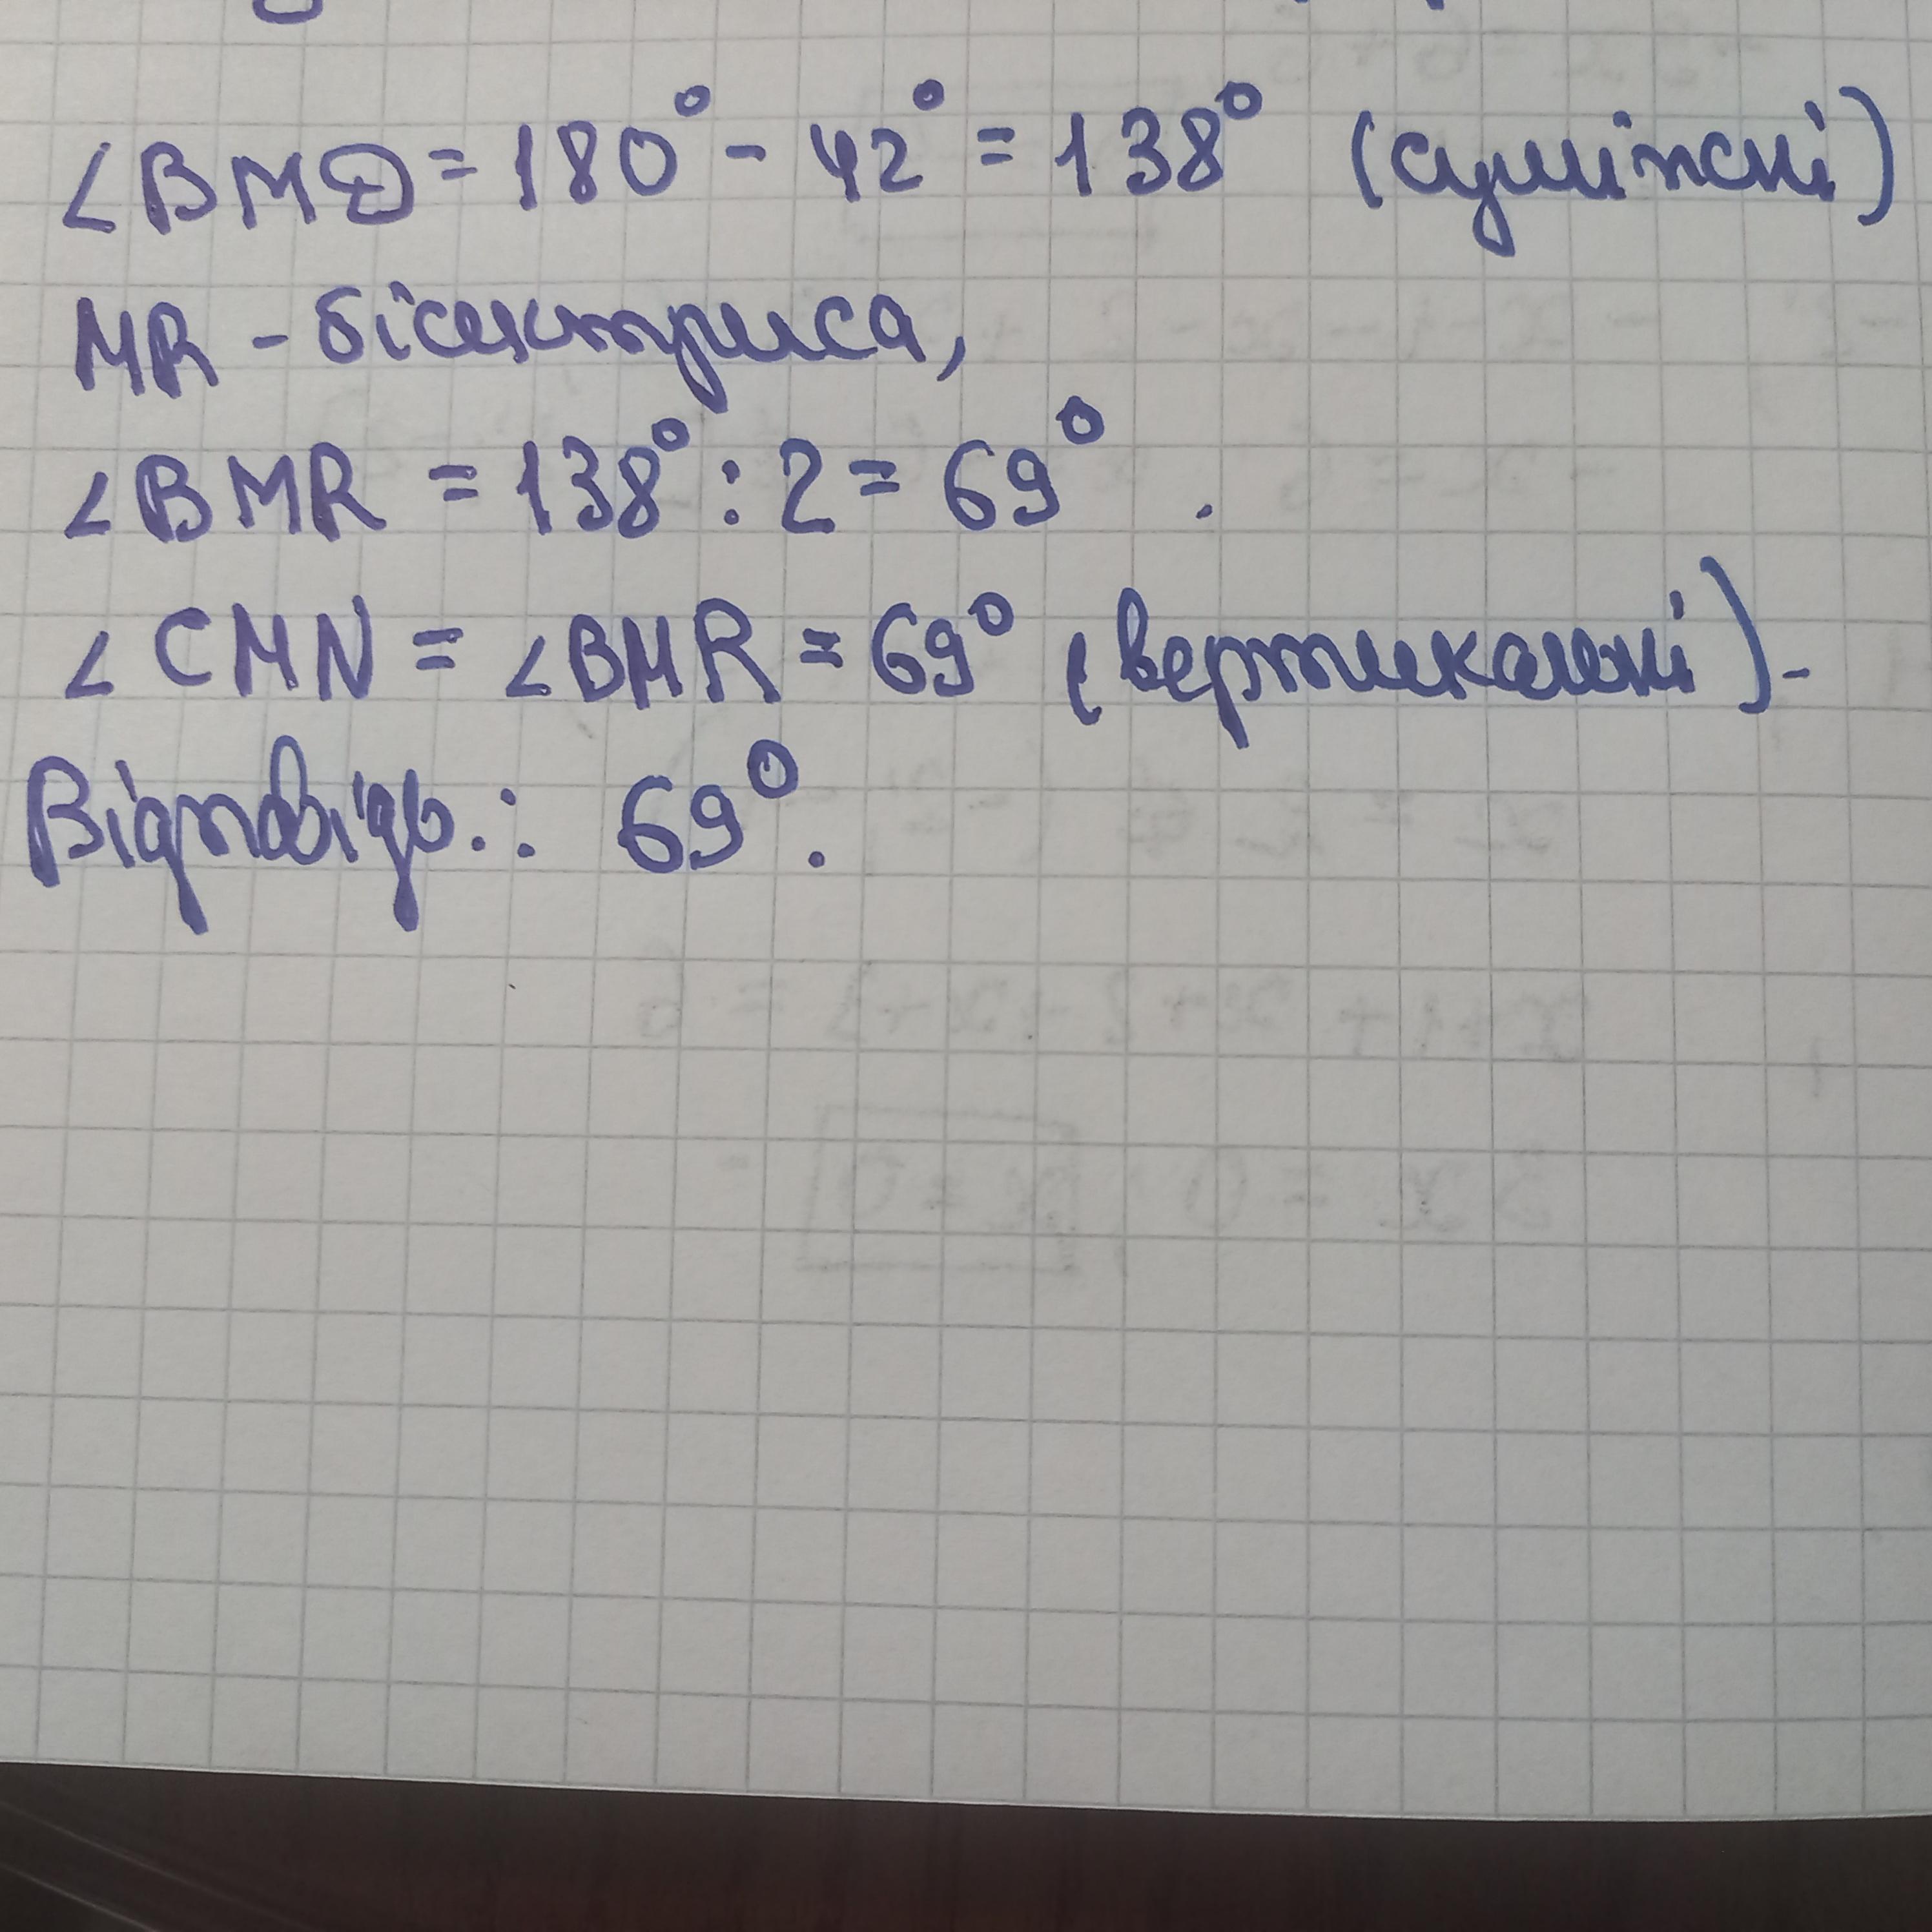 ∠BMD = 180° - 42° = 138° (суміжні)
MR - бісектриса,
∠BMR = 138° : 2 = 69° .
∠CMN = ∠BMR = 69° (вертикальні).
Відповідь.: 69°.